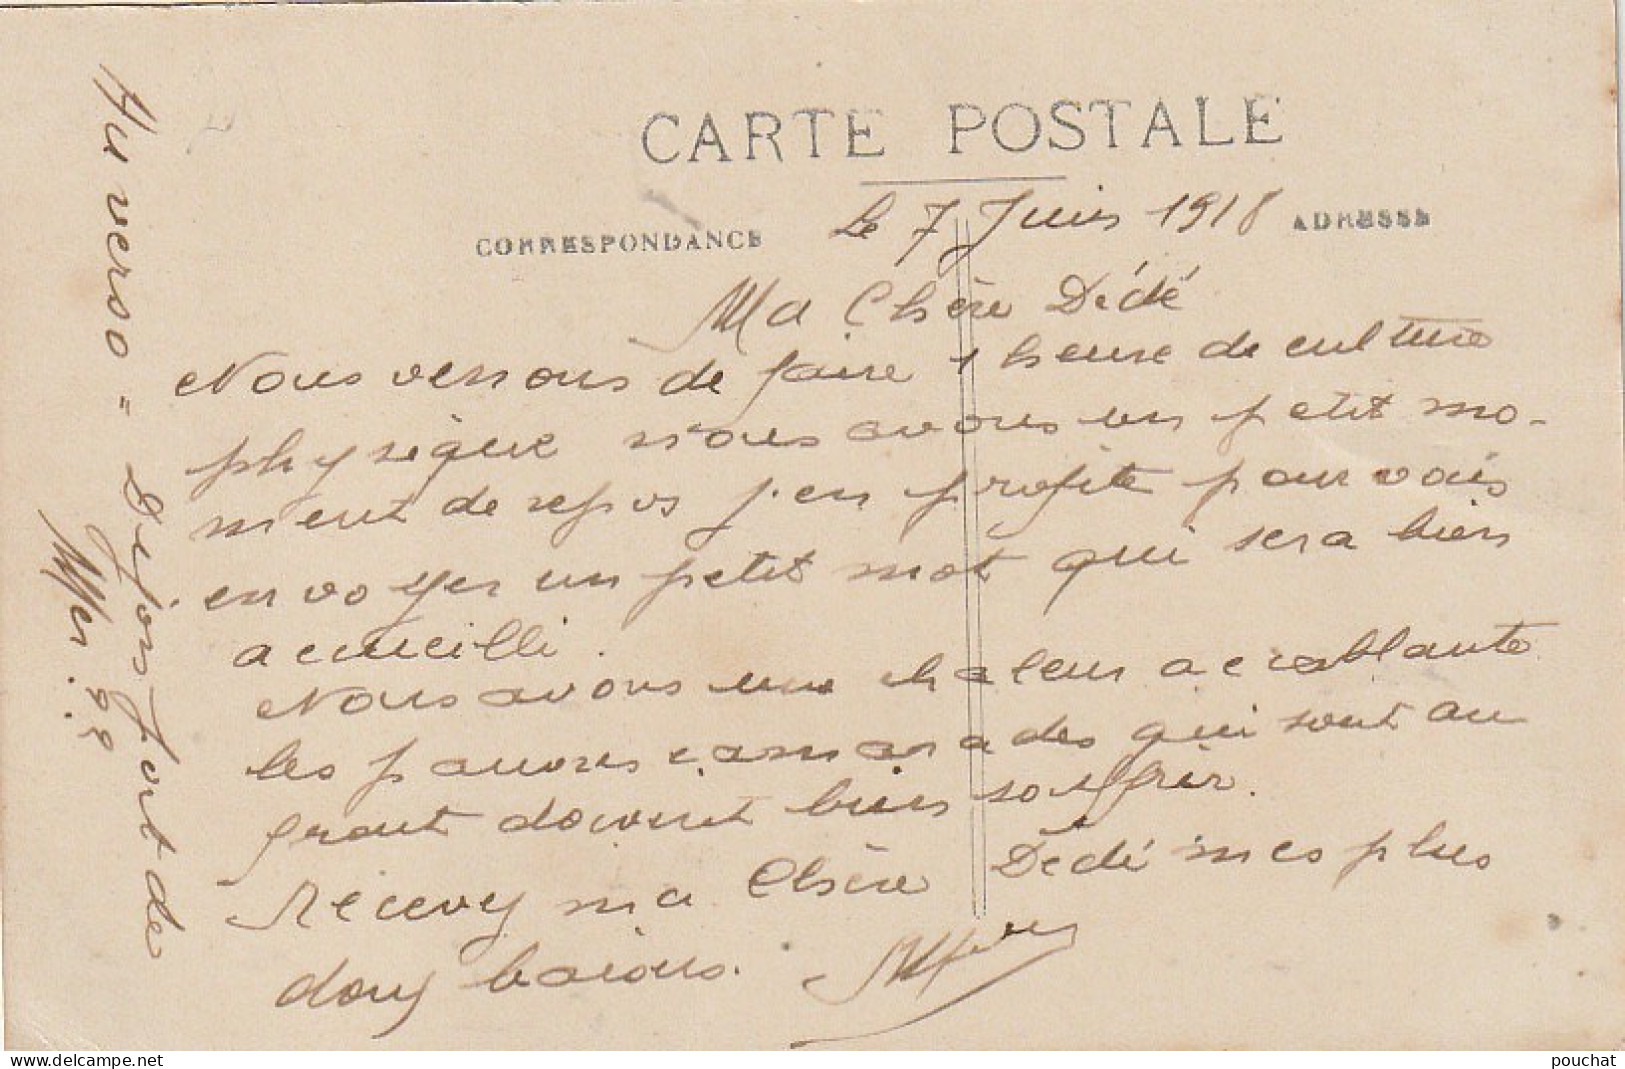 CARTE POSTALE
CORRESPONDANCE
ADRESSE
Le 7 Juin 1918
Ma Chère Dédé
Nous venons de faire 1 heure de culture
physique nous avons un petit mo-
ment de repos j'en profite pour vous
envoyer un petit mot qui sera bien
accueilli.
Nous avons une chaleur accablante
les pauvres camarades qui sont au
front doivent bien souffrir.
Recevez ma Chère Dédé mes plus
doux baisers.
Au verso = Dijon, Port de
delcampe.net
pouchat